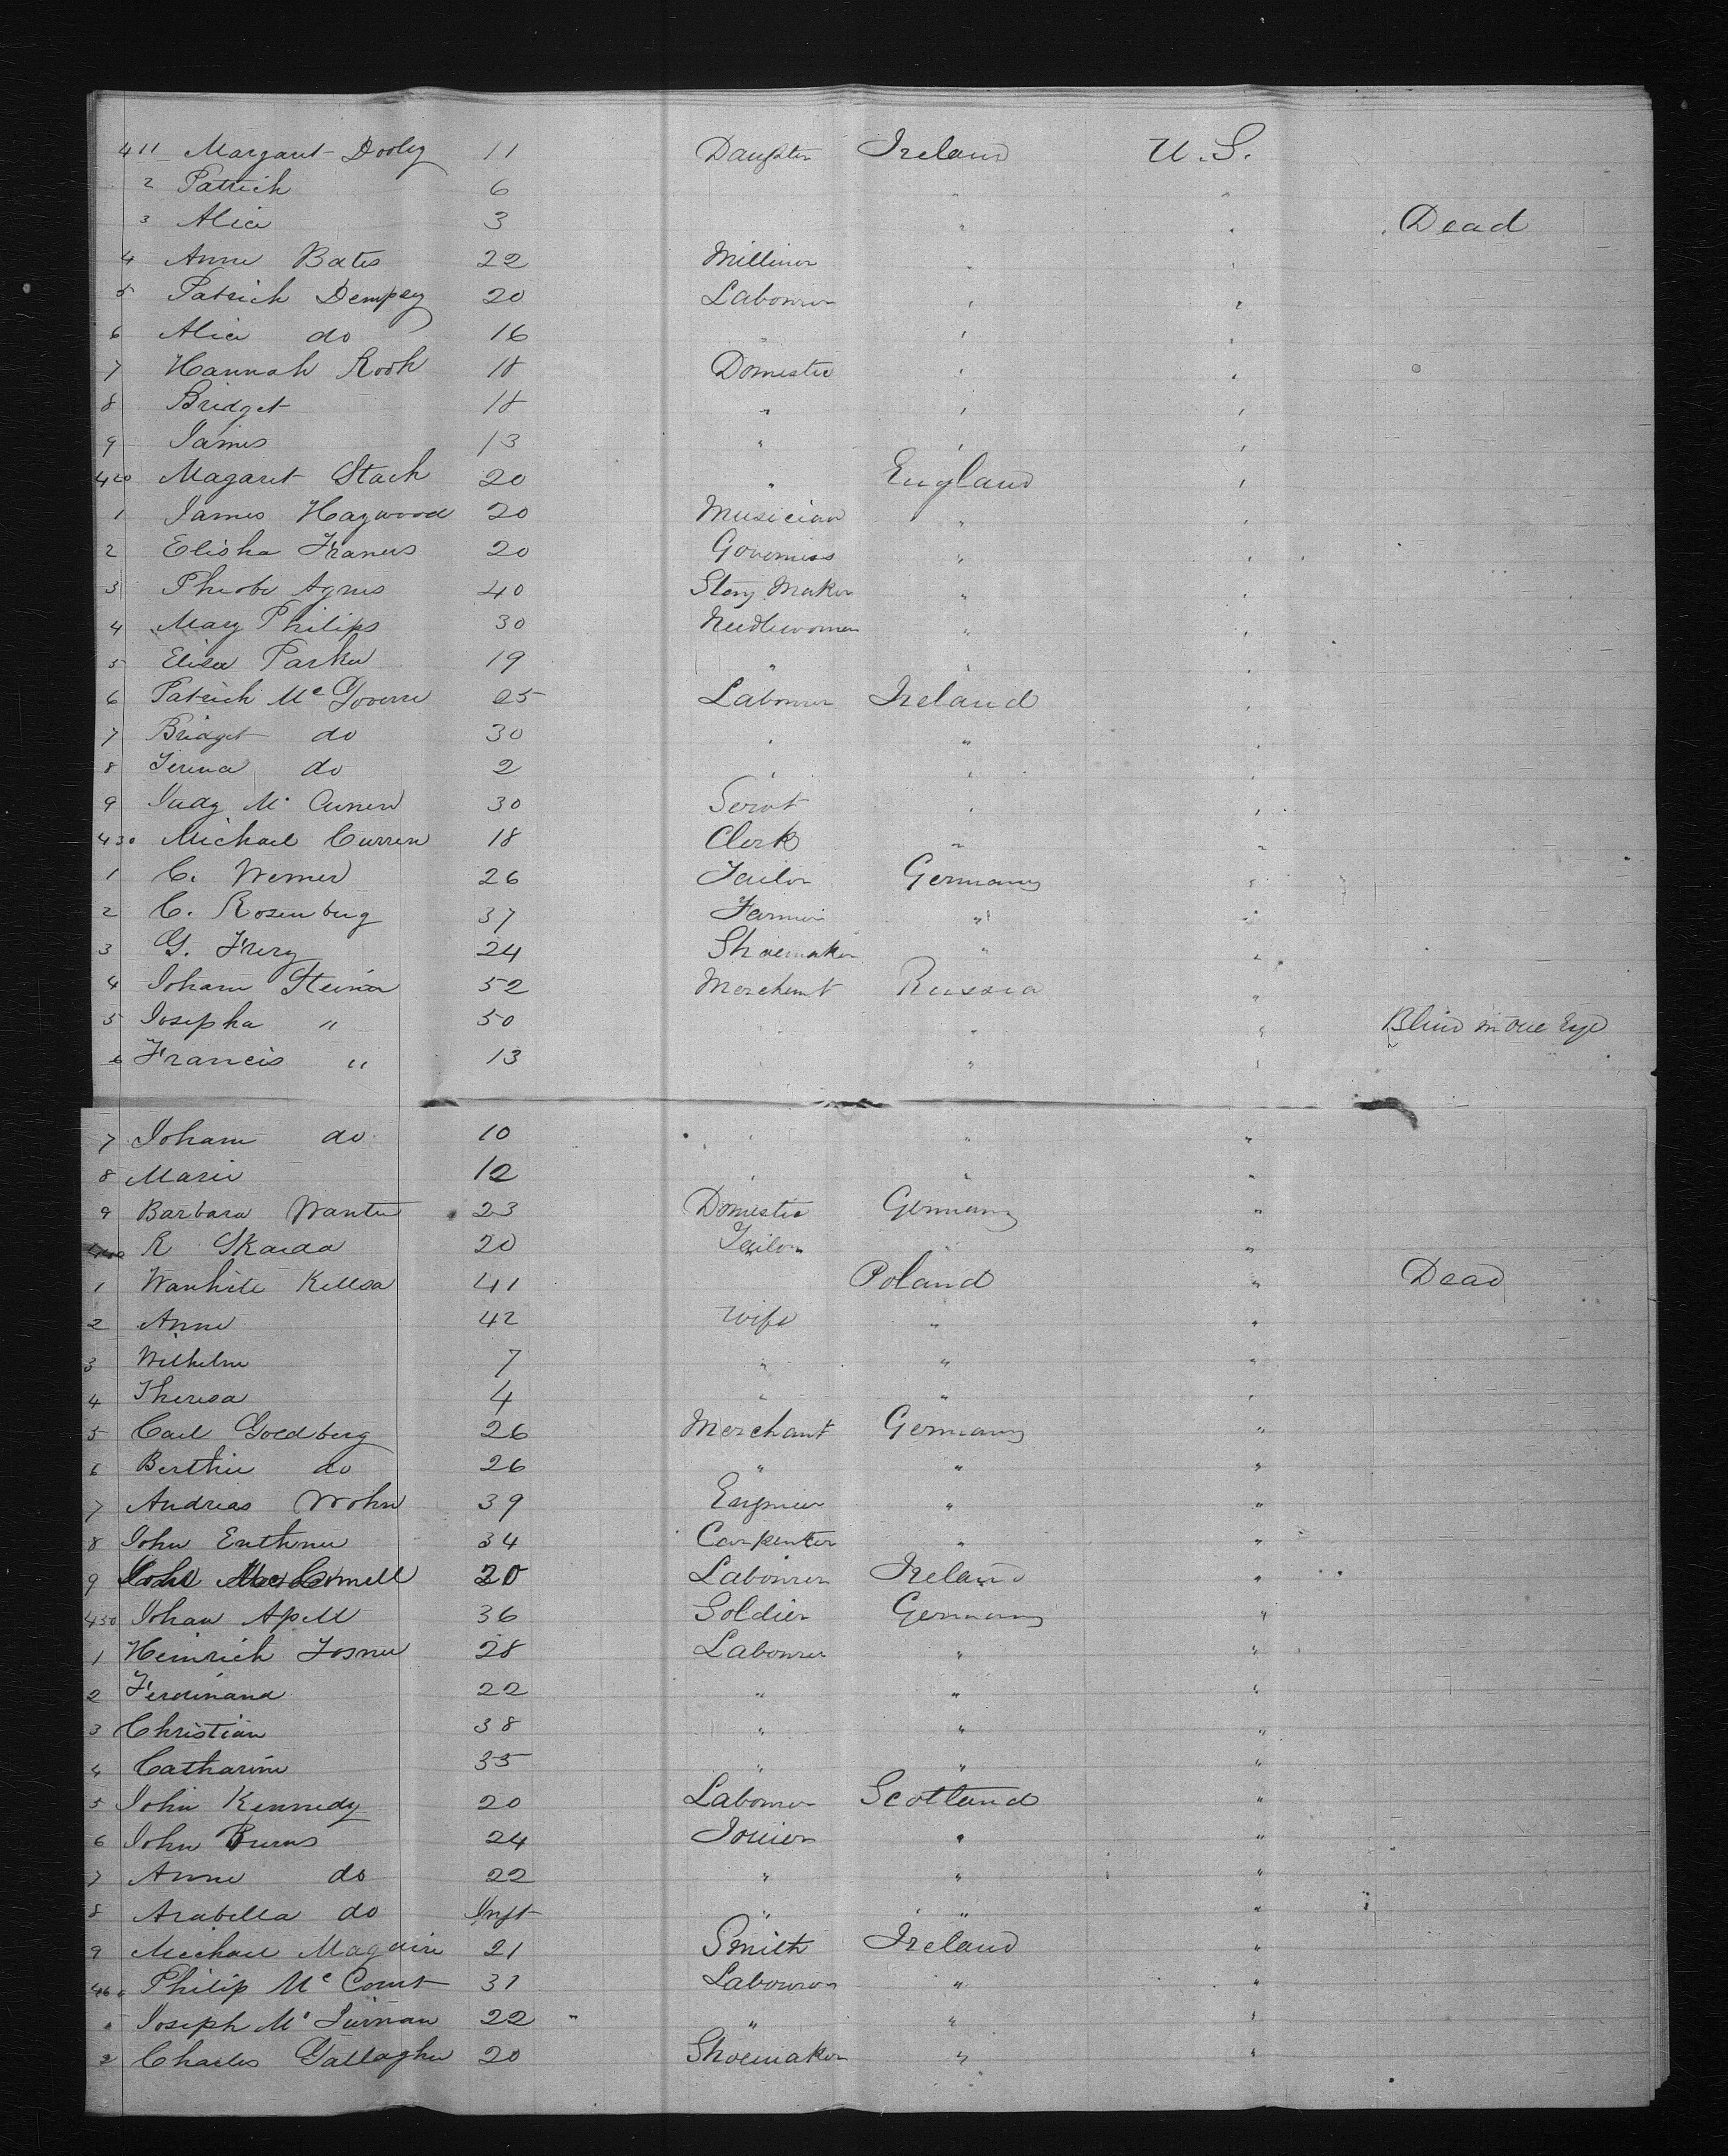 411 Margaret Dooley 11 Daughter Ireland U.S.
2 Patrick 6 " "
3 Alice 3 " " Dead
4 Anne Bates 22 Milliner " "
5 Patrick Dempsey 20 Labourer " "
6 Alice do 16 " " "
7 Hannah Rook 18 Domestic " "
8 Bridget 18 " " "
9 James 13 " " "
420 Magaret Stack 20 " England "
1 James Haywood 20 Musician " "
2 Elisha Francis 20 Governess " "
3 Pheobe Agnes 40 Stay Maker " "
4 Mary Philips 30 Needlewoman " "
5 Elisa Parker 19 " " "
6 Patrick Mc Goverre 25 Labourer Ireland "
7 Bridget do 30 " " "
8 do 2 " " "
9 Judy Mc 30 Servt " "
430 Michael Curren 18 Clerk " "
1 C. Werner 26 Tailor Germany "
2 C. Rosenberg 37 Farmer " "
3 G. Frerg 24 Shoemaker " "
4 Joham Steiner 52 Merchent Russia "
5 Josepha " 50 " " " Blind in one Eye
6 Francis " 13 " " "
7 Joham do 10 " " "
8 Marie 12 " " "
9 Barbara Wanter 23 Domestic Germany "
R Skaida 20 Tailor " "
1 Wanhite Kellsa 41 Poland " Dead
2 Anne 42 Wife " "
3 Wilhelm 7 " " "
4 Theresa 4 " " "
5 Carl Goldberg 26 Merchant Germany "
6 Berthie do 26 " " "
7 Andreas Wohn 39 Engineer " "
8 John Enthner 34 Carpenter " "
9 20 Labourer Ireland "
450 Johan Apell 36 Soldier Germany "
1 Heinrich Josner 28 Labourer " "
2 Ferdinand 22 " " "
3 Christian 38 " " "
4 Catharine 35 " " "
5 John Kennedy 20 Labourer Scotland "
6 John Burns 24 Joiner " "
7 Anne do 22 " " "
8 Arabella do Inft " " "
9 Michael Maguire 21 Smith Ireland "
460 Philip Mc Court 31 Labourer " "
Joseph Mc Tiernan 22 " " " "
2 Charles Gallagher 20 Shoemaker " "